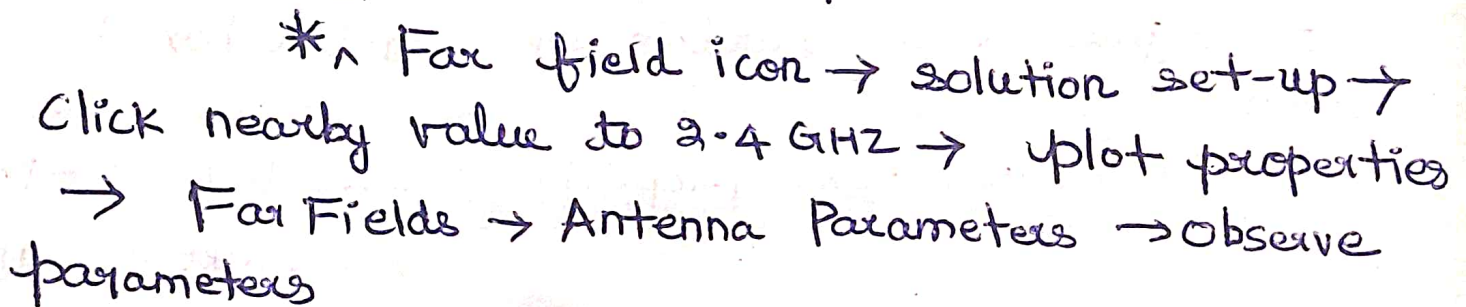 *^ Far field icon → solution set-up →
Click nearby value to 2.4 GHZ → plot properties
→ Far Fields → Antenna Parameters → Observe
parameters